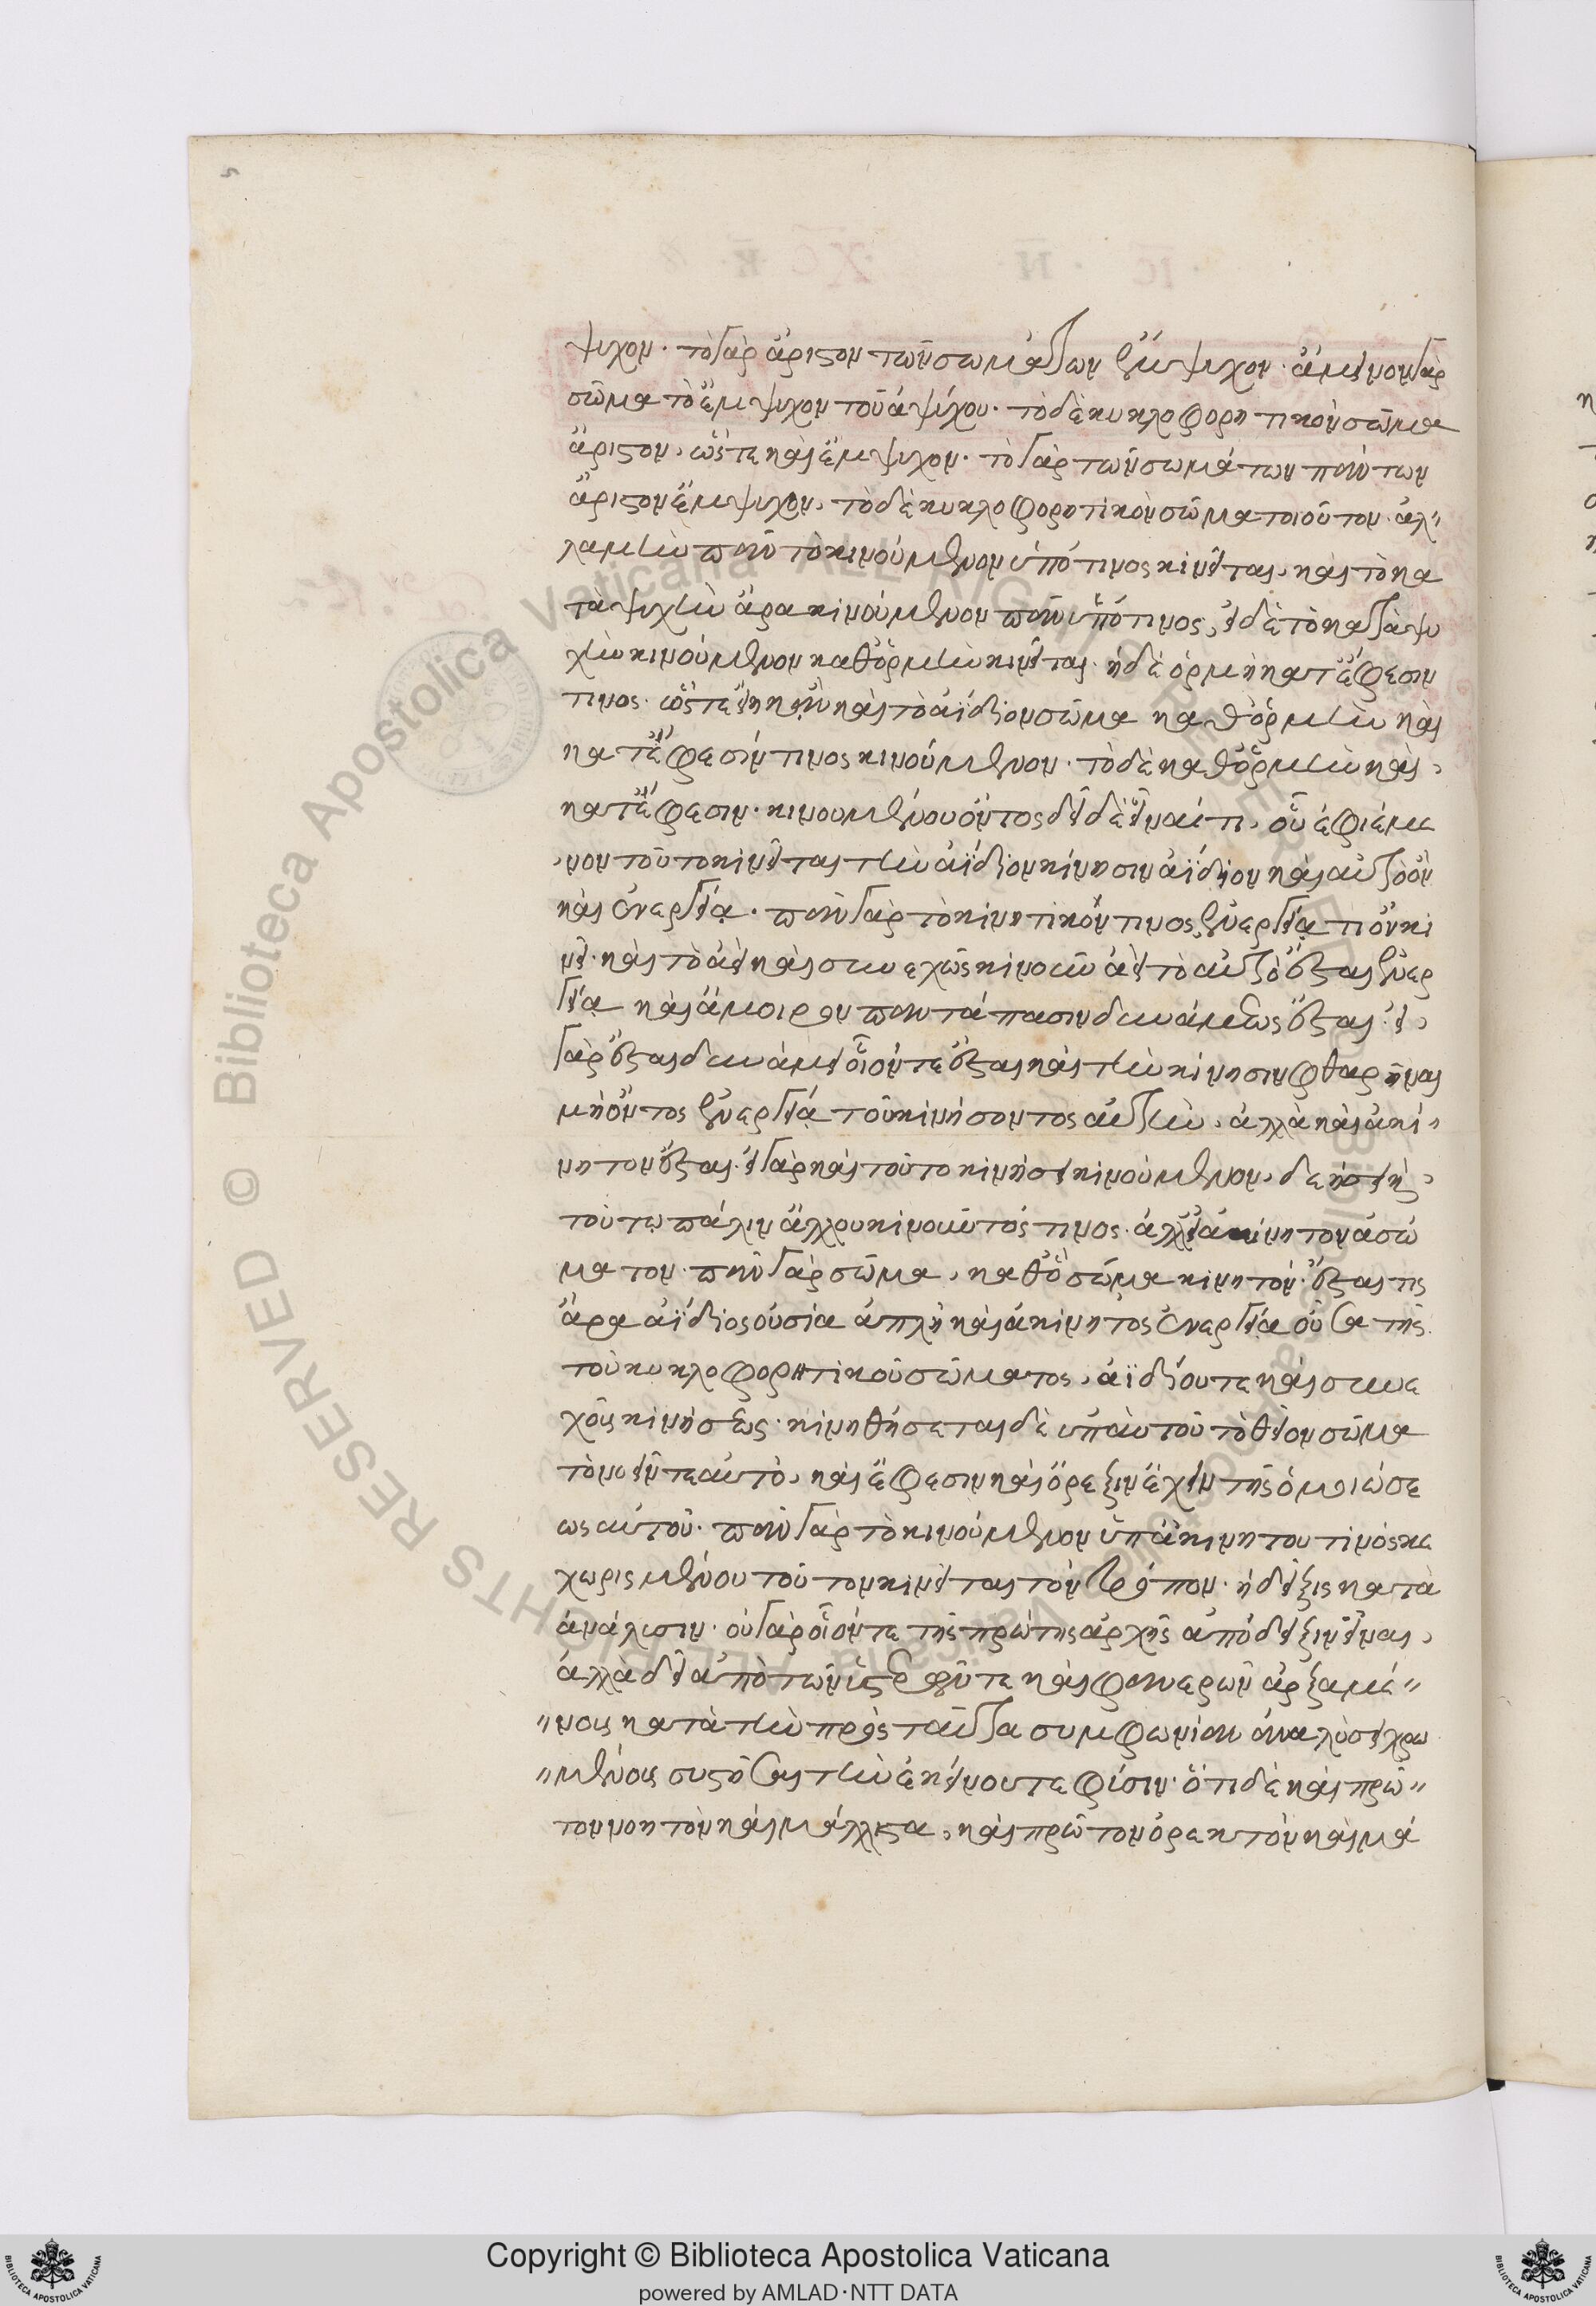 ψυχον· τὸ γὰρ ἄριστον τῶν σωμάτων ἔμψυχον· ἄμεινον γὰρ
σῶμα τὸ ἔμψυχον τοῦ ἀψύχου· τὸ δὲ κυκλοφορητικὸν σῶμα
ἄριστον, ὥστε καὶ ἔμψυχον· τὸ γὰρ τῶν σωμάτων πάντων
ἄριστον ἔμψυχον, τὸ δὲ κυκλοφορητικὸν σῶμα τοιοῦτον· ἀλ"
λαμὴν πᾶν τὸ κινούμενον ὑπό τινος κινεῖται, καὶ τὸ κα
τὰ ψυχὴν ἄρα κινούμενον πᾶν ὑπό τινος, εἰ δὲ τὸ κατὰ ψυ
χὴν κινούμενον καθ' ὁρμὴν κινεῖται· ἡ δὲ ὁρμὴ κατ' ἔφεσιν
τινος· ὥστε εἴη κἂν καὶ τὸ ἀΐδιον σῶμα καθ' ὁρμὴν καὶ
κατ' ἔφεσίν τινος κινούμενον· τὸ δὲ καθ' ὁρμὴν καὶ,
κατ' ἔφεσιν· κινουμένου ὄντος δεῖ δὲ εἶναί τι, οὗ ἐφιέμε
νον τοῦτο κινεῖται τὴν ἀΐδιον κίνησιν ἀΐδιον καὶ αὐτὸ ὂν
καὶ ἐνεργείᾳ· πᾶν γὰρ τὸ κινητικόν τινος ἐνεργείᾳ τι ὂν κι
νεῖ· καὶ τὸ ἀεὶ καὶ συνεχῶς κινοῦν ἀεὶ τὸ αὐτὸ ἔσται ἐνερ
γείᾳ καὶ ἄμοιρον παντάπασιν δυνάμεως ἔσται· εἰ,
γὰρ ἔσται δυνάμει οἷόν τε ἔσται καὶ τὴν κίνησιν φθαρῆναι
μὴ ὄντος ἐνεργείᾳ τοῦ κινήσοντος αὐτὴν, ἀλλὰ καὶ ἀκί"
νητον ἔσται· εἰ γὰρ καὶ τοῦτο κινήσει κινούμενον, δεήσει,
τούτῳ πάλιν ἄλλου κινοῦντός τινος· ἀλλ' εἰ ἀκίνητον ἀσώ
ματον· πᾶν γὰρ σῶμα, καθ' ὃ σῶμα κινητόν· ἔσται τις
ἄρα ἀΐδιος οὐσία ἁπλῆ καὶ ἀκίνητος ἐνεργείᾳ οὖσα τῆς
τοῦ κυκλοφορητικοῦ σώματος, ἀϊδίου τε καὶ συνε
χοῦς κινήσεως· κινηθήσεται δὲ ὑπ' αὐτοῦ τὸ θεῖον σῶμα
τὸ νοεῖν τε αὐτὸ, καὶ ἔφεσιν καὶ ὄρεξιν ἔχειν τῆς ὁμοιώσε
ως αὐτοῦ· πᾶν γὰρ τὸ κινούμενον ὑπ' ἀκινήτου τινὸς κε
χωρισμένου τοῦτον κινεῖται τὸν τρόπον· ἡ δεῖξις κατὰ
ἀνάλυσιν· οὐ γὰρ οἷόν τε τῆς πρώτης ἀρχῆς ἀπόδειξιν εἶναι,
ἀλλὰ δεῖ ἀπὸ τῶν ὑστέρων τε καὶ φανερῶν ἀρξαμέ"
"νοις κατὰ τὴν πρὸς ταῦτα συμφωνίαν ἀναλύσει χρω
"μένοις συστῆσαι τὴν ἐκείνου τε φύσιν· ὅτι δὲ καὶ πρῶ"
τον νοητὸν καὶ μάλιστα, καὶ πρῶτον ὀρεκτὸν καὶ μά
Copyright © Biblioteca Apostolica Vaticana
powered by AMLAD·NTT DATA